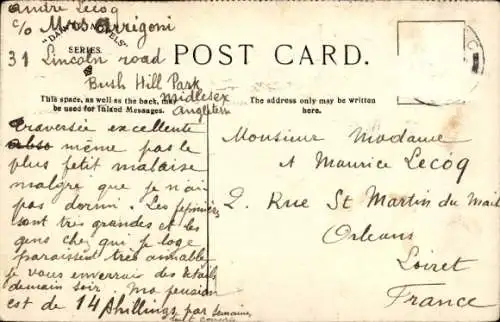 André Lecoq
c/o Mrs Arrigoni
"DAINTY NOVELS"
SERIES.
31 Lincoln road
Bush Hill Park
Middlesex
Angleterre
POST CARD.
This space, as well as the back, may
be used for Inland Messages.
The address only may be written
here.
Traversée excellente
même pas le
plus petit malaise
malgré que je n'ai
pas dormi. Les pépinières
sont très grandes et les
gens chez qui je loge
paraissent très aimables
je vous enverrai des détails
demain soir. Ma pension
est de 14 shillings par semaine
Monsieur Madame
et Maurice Lecoq
2. Rue St Martin du Mail
Orleans
Loiret
France